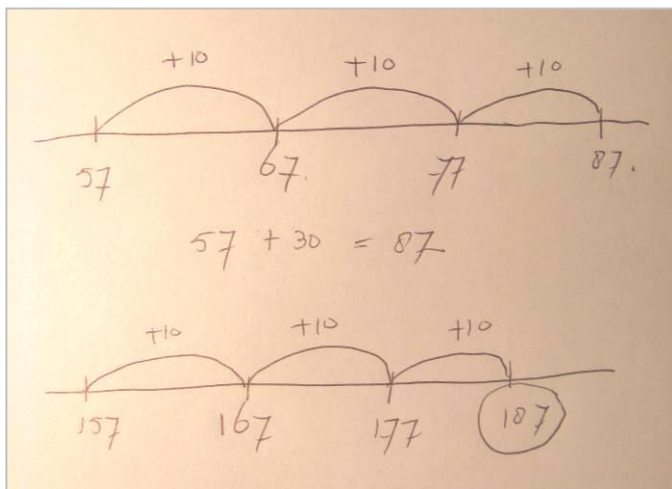 +10 +10 +10
57 67. 77 87.
57 + 30 = 87
+10 +10 +10
157 167 177 187